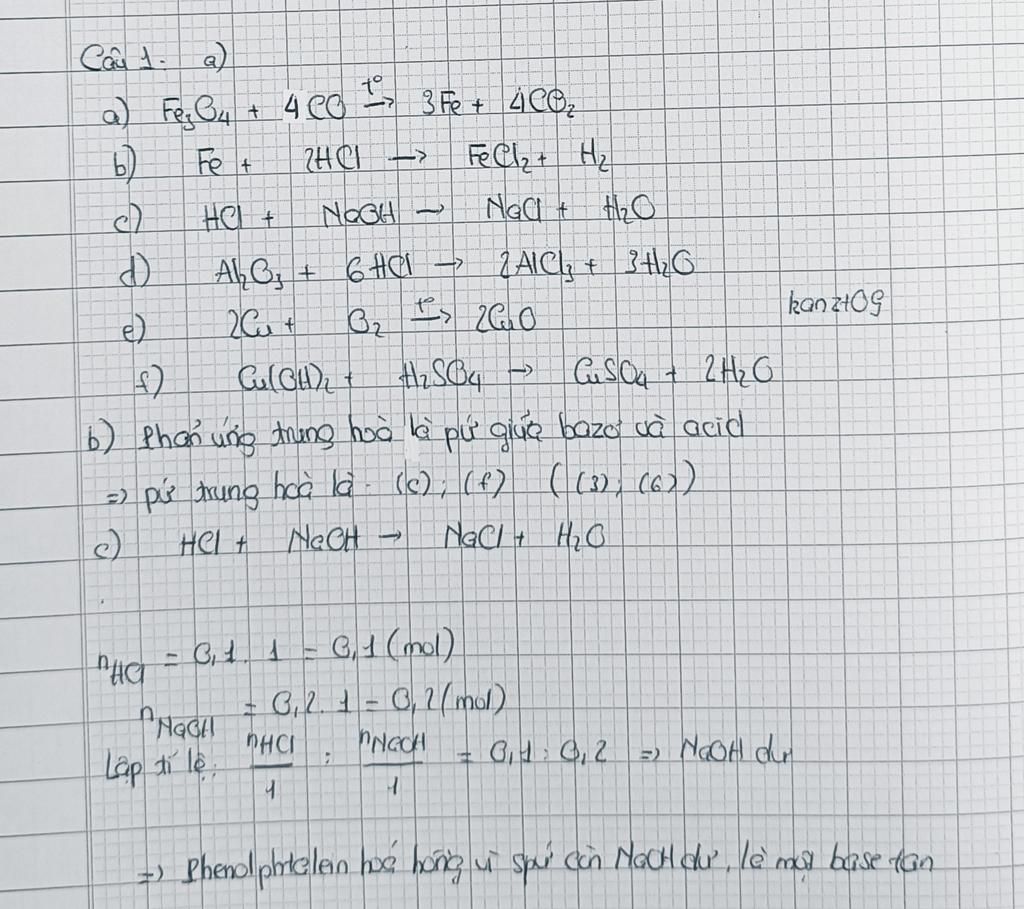 Câu 1. a)
a) Fe3O4 + 4CO t°→ 3Fe + 4CO2
b) Fe + 2HCl → FeCl2 + H2
c) HCl + NaOH → NaCl + H2O
d) Al2O3 + 6HCl → 2AlCl3 + 3H2O
e) 2Cu + O2 t°→ 2CuO
kanzt09
f) Cu(OH)2 + H2SO4 → CuSO4 + 2H2O
b) Phản ứng trung hoà là pứ giữa bazơ và acid
=> pứ trung hoà là: (c); (f) ((3); (6))
c) HCl + NaOH → NaCl + H2O
nHCl = 0,1. 1 = 0,1 (mol)
nNaOH = 0,2. 1 = 0,2 (mol)
Lập tỉ lệ: nHCl/1 : nNaOH/1 = 0,1 : 0,2 => NaOH dư
=> Phenolphtalein hoá hồng vì spứ còn NaOH dư, là một base tan